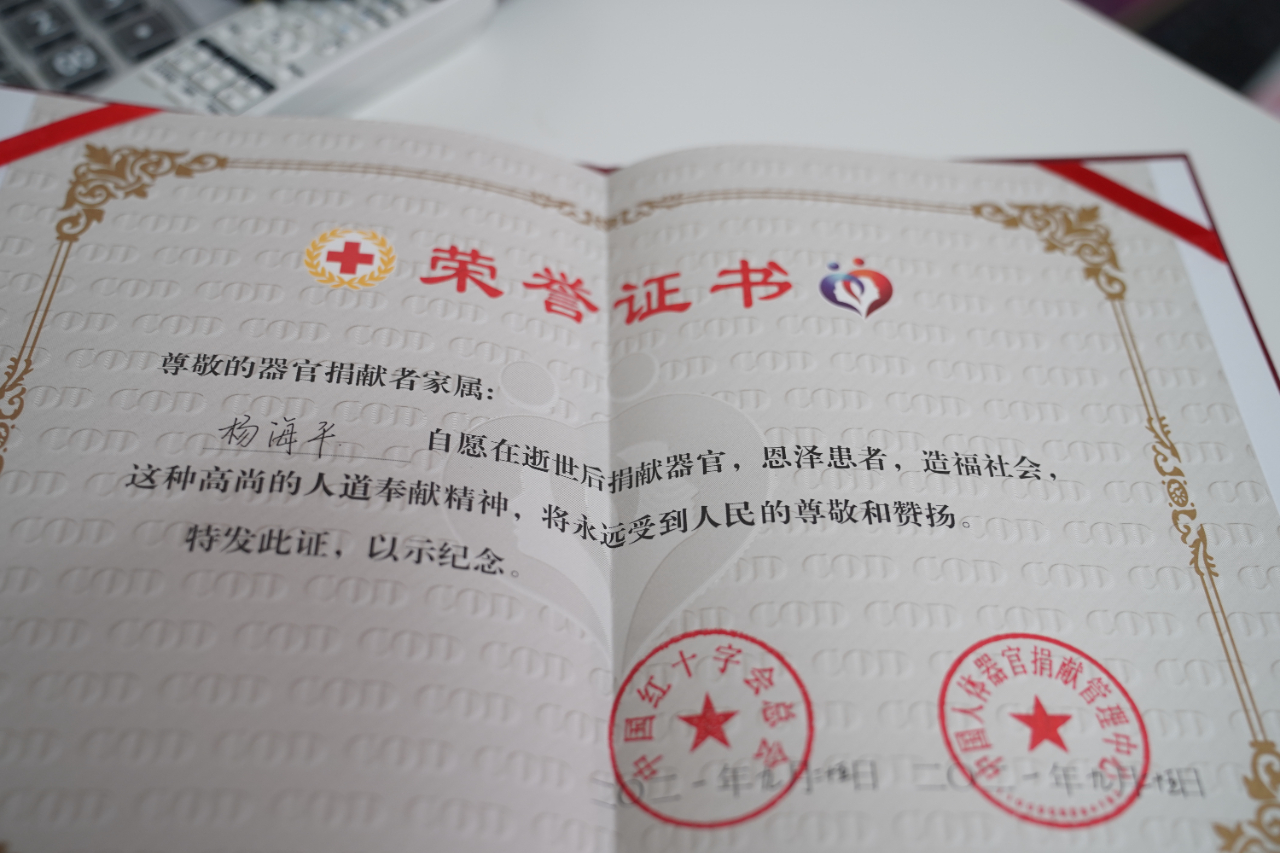 荣誉证书
尊敬的器官捐献者家属：
杨海平 自愿在逝世后捐献器官，恩泽患者，造福社会，
这种高尚的人道奉献精神，将永远受到人民的尊敬和赞扬。
特发此证，以示纪念。
中国红十字会总会
中国人体器官捐献管理中心
二〇二一年九月 日
二〇二一年九月 日